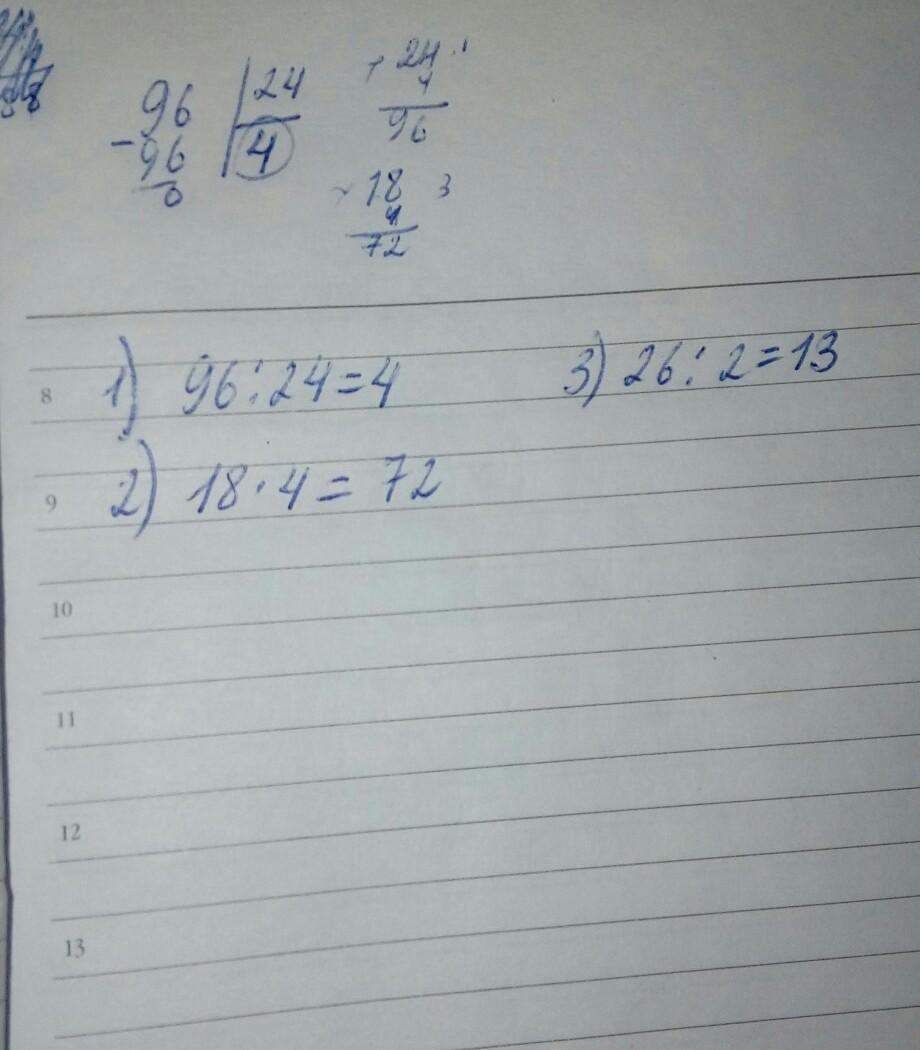 96 | 24
- 96 | 4
0
24
4
96
18 3
4
72
8 1) 96:24=4 3) 26:2=13
9 2) 18·4=72
10
11
12
13